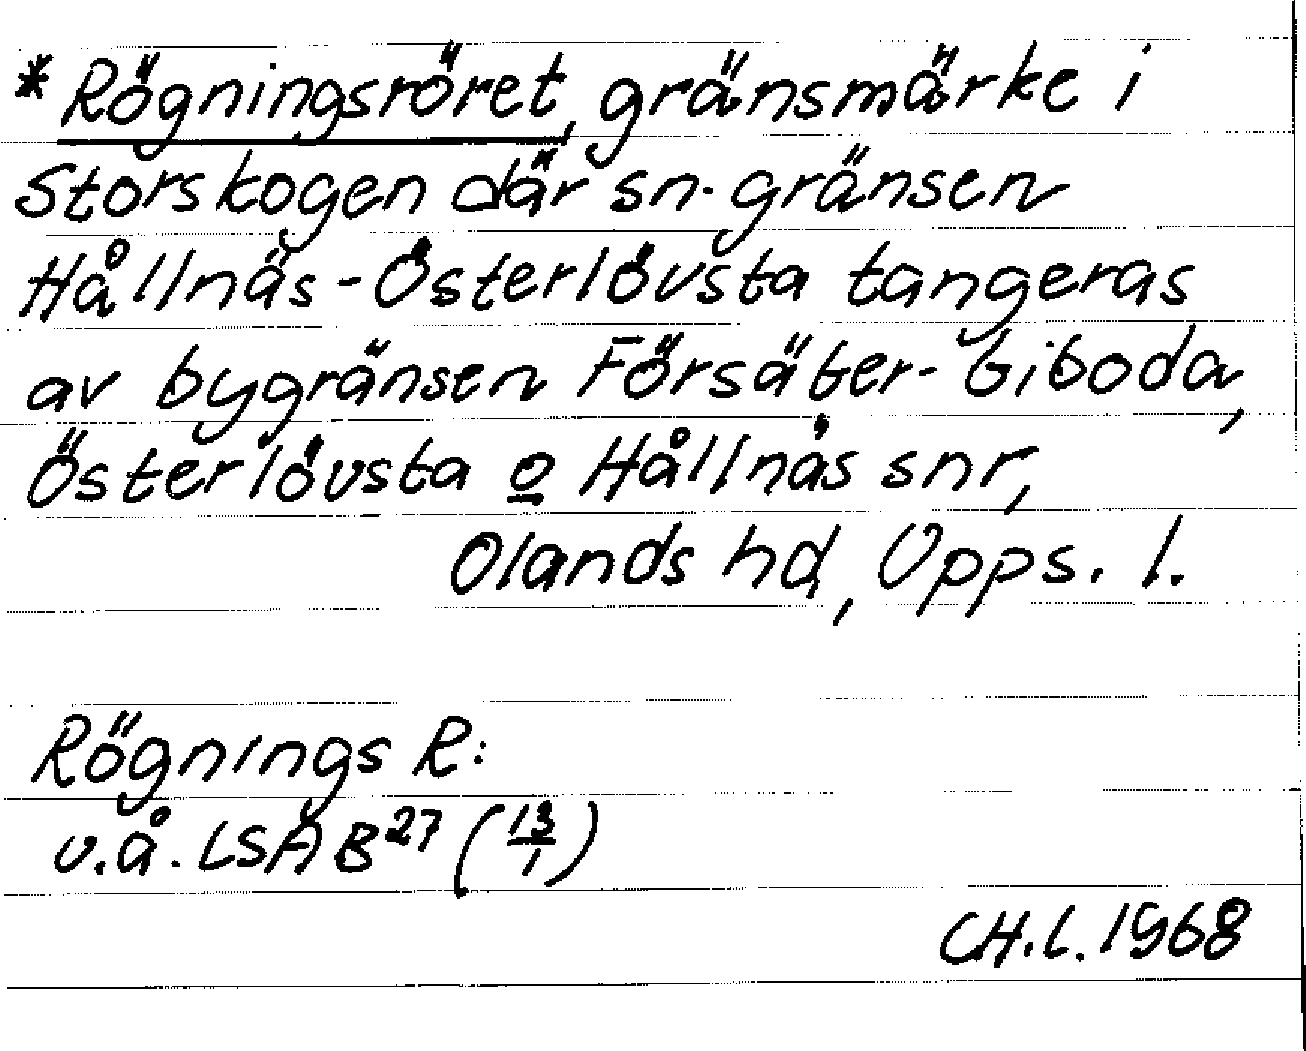 * Rögningsröret, gränsmärke i
Storskogen där sn-gränsen
Hållnäs-Österlövsta tangeras
av bygränsen Försäter-Giboda,
Österlövsta o Hållnäs snr,
Olands hd, Upps. l.
Rögnings R:
u.å. LSA B27 (13/1)
CH.L. 1968